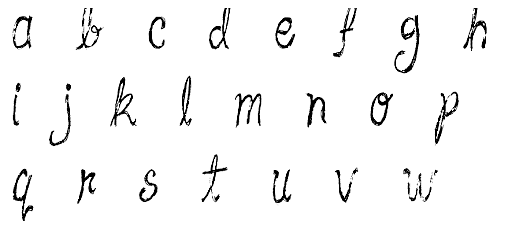 a b c d e f g h
i j k l m n o p
q r s t u v w